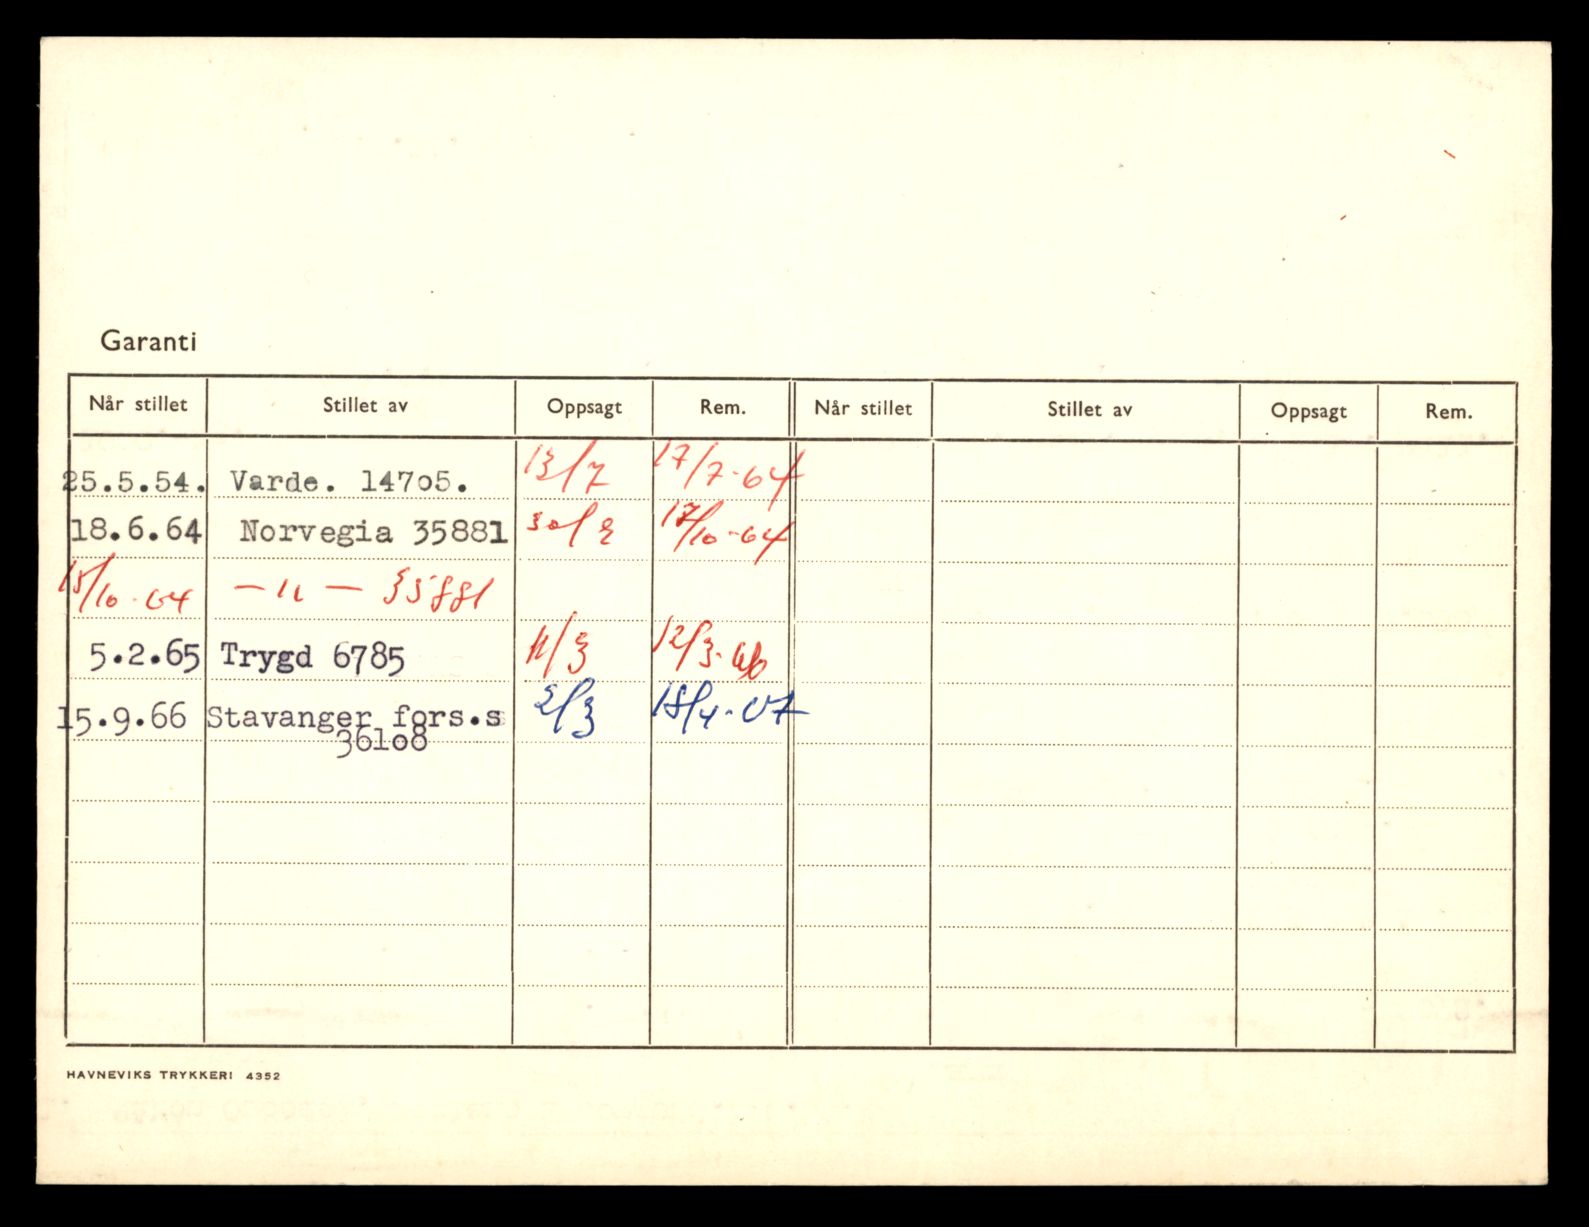 Garanti
Når stillet Stillet av Oppsagt Rem. Når stillet Stillet av Oppsagt Rem.
25.5.54. Varde. 147o5. 13/7 17/7-64
18.6.64 Norvegia 35881 30/9 17/10-64
15/10-64 — " — 35881
5.2.65 Trygd 6785 11/3 12/3-66
15.9.66 Stavanger fors.s 2/3 18/4-67
361o8
HAVNEVIKS TRYKKERI 4352